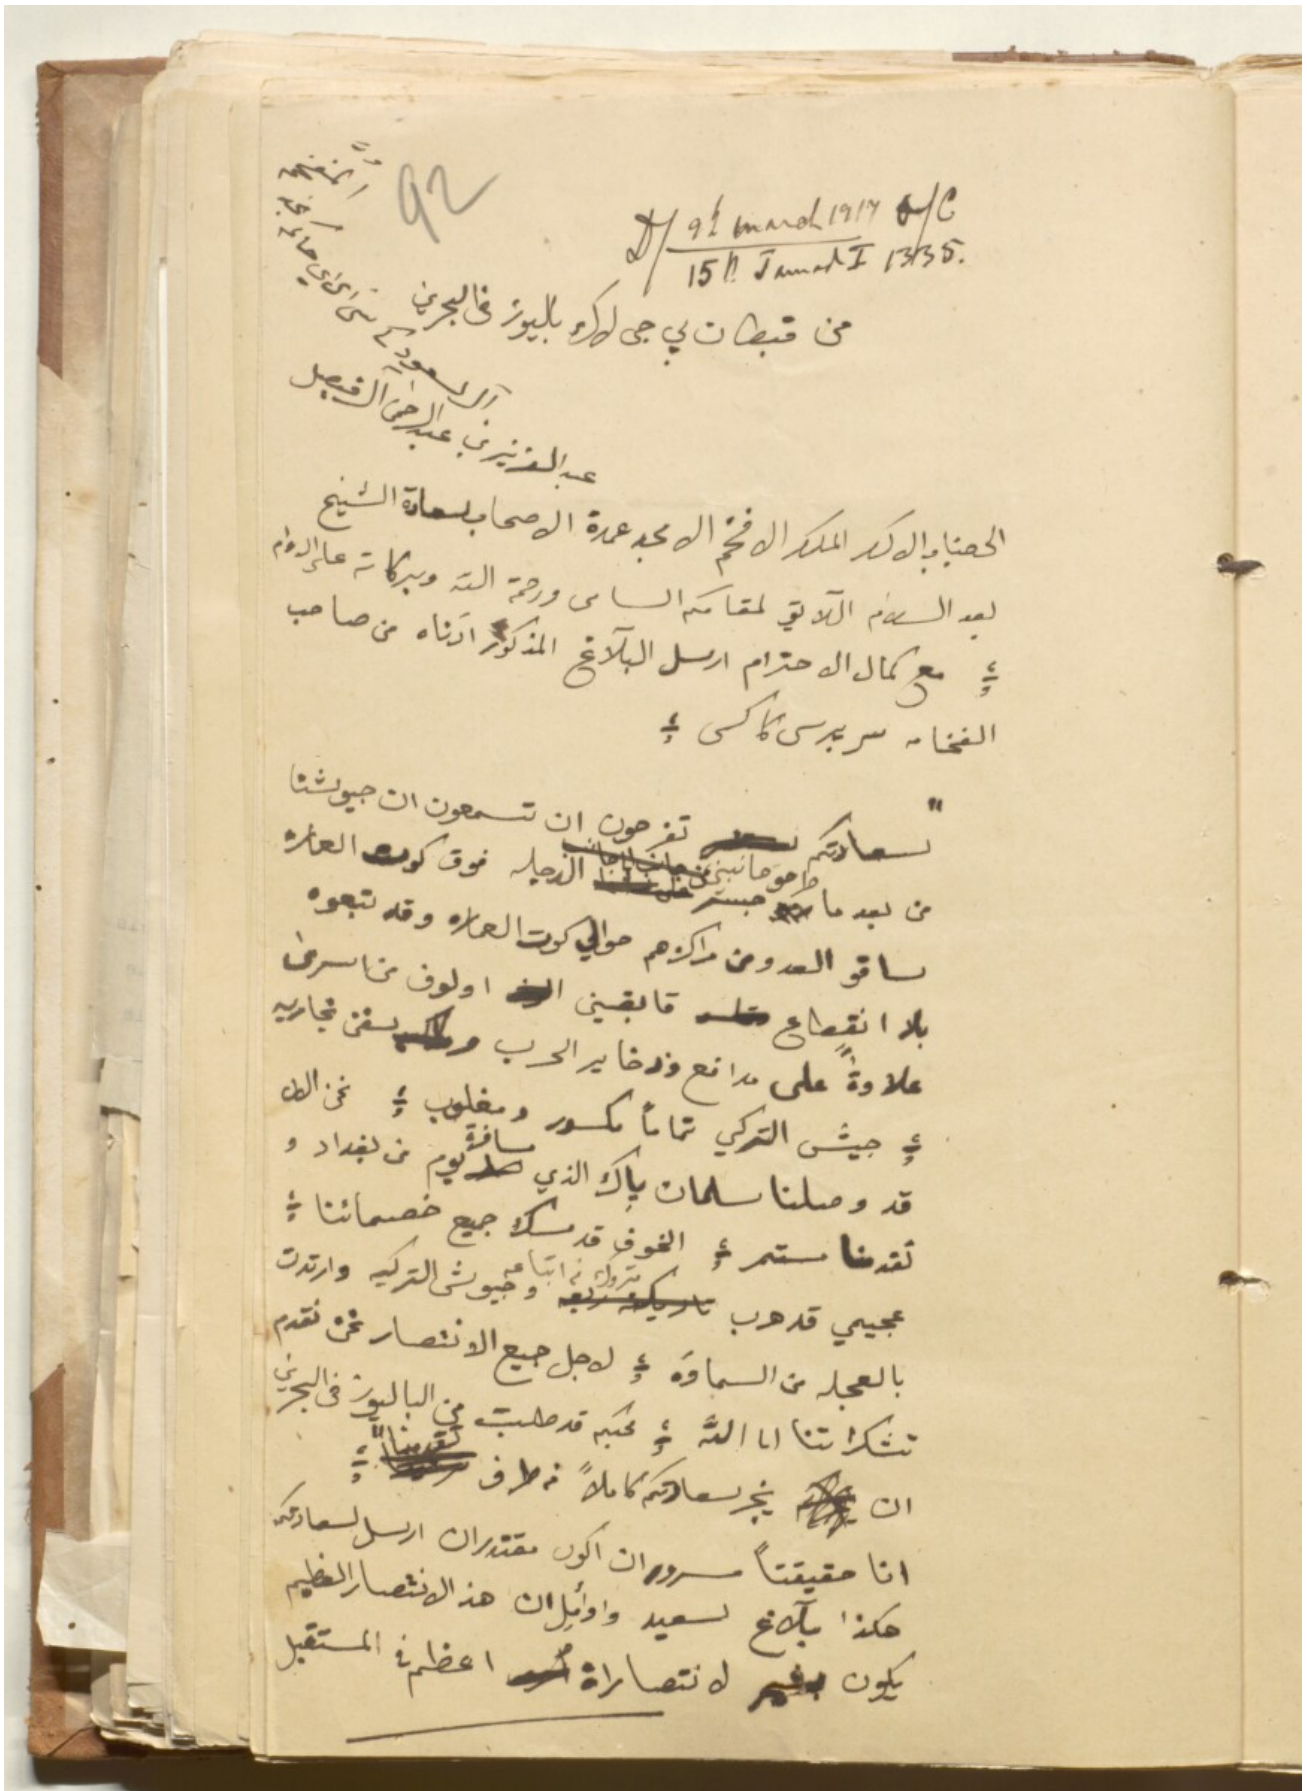 92
D/ 9th march 1917 O/C
15th Jamad I 1335.
من قبطان بي جي لاك باليوز في البحرين
الى جناب الاكرم المكرم الافخم الامجد عمدة الاصحاب سعادة الشيخ
عبد العزيز بن عبد الرحمن الفيصل
آل السعود
بعد السلام اللائق لمقامكم السامي ورحمة الله وبركاته على الدوام
مع كمال الاحترام ارسل البلاغ المذكور ادناه من صاحب
الفخامه سر برسي كاكس
" سعادتكم تفرحون ان تسمعون ان جيوشنا
من بعد ما الدجيله فوق كوت العماره
ساقو العدو من مراكزهم حوالي كوت العماره وقد تبعوه
بلا انقطاع قابضين الوف من اسرى
علاوةً على مدافع وذخاير الحرب وسفن تجاريه
جيش التركي تماماً مكسور ومغلوب نحن الان
قد وصلنا سلمان پاك الذي مسافة يوم من بغداد و
تقدمنا مستمر الخوف قد مسك جميع خصمائنا
عجيمي قد هرب متروك من اتباعه وجيوش التركيه وارتدت
بالعجله من السماوه لاجل جميع الانتصار نحن نقدم
تشكراتنا الى الله محبكم قد طلبت من الباليوز في البحرين
ان يخبر سعادتكم كاملاً من طرف تقدمنا"
انا حقيقتاً مسرور ان اكون مقتدر ان ارسل لسعادتكم
هكذا بلاغ سعيد واوئمل ان هذا الانتصار العظيم
يكون لانتصاراة اعظم في المستقبل